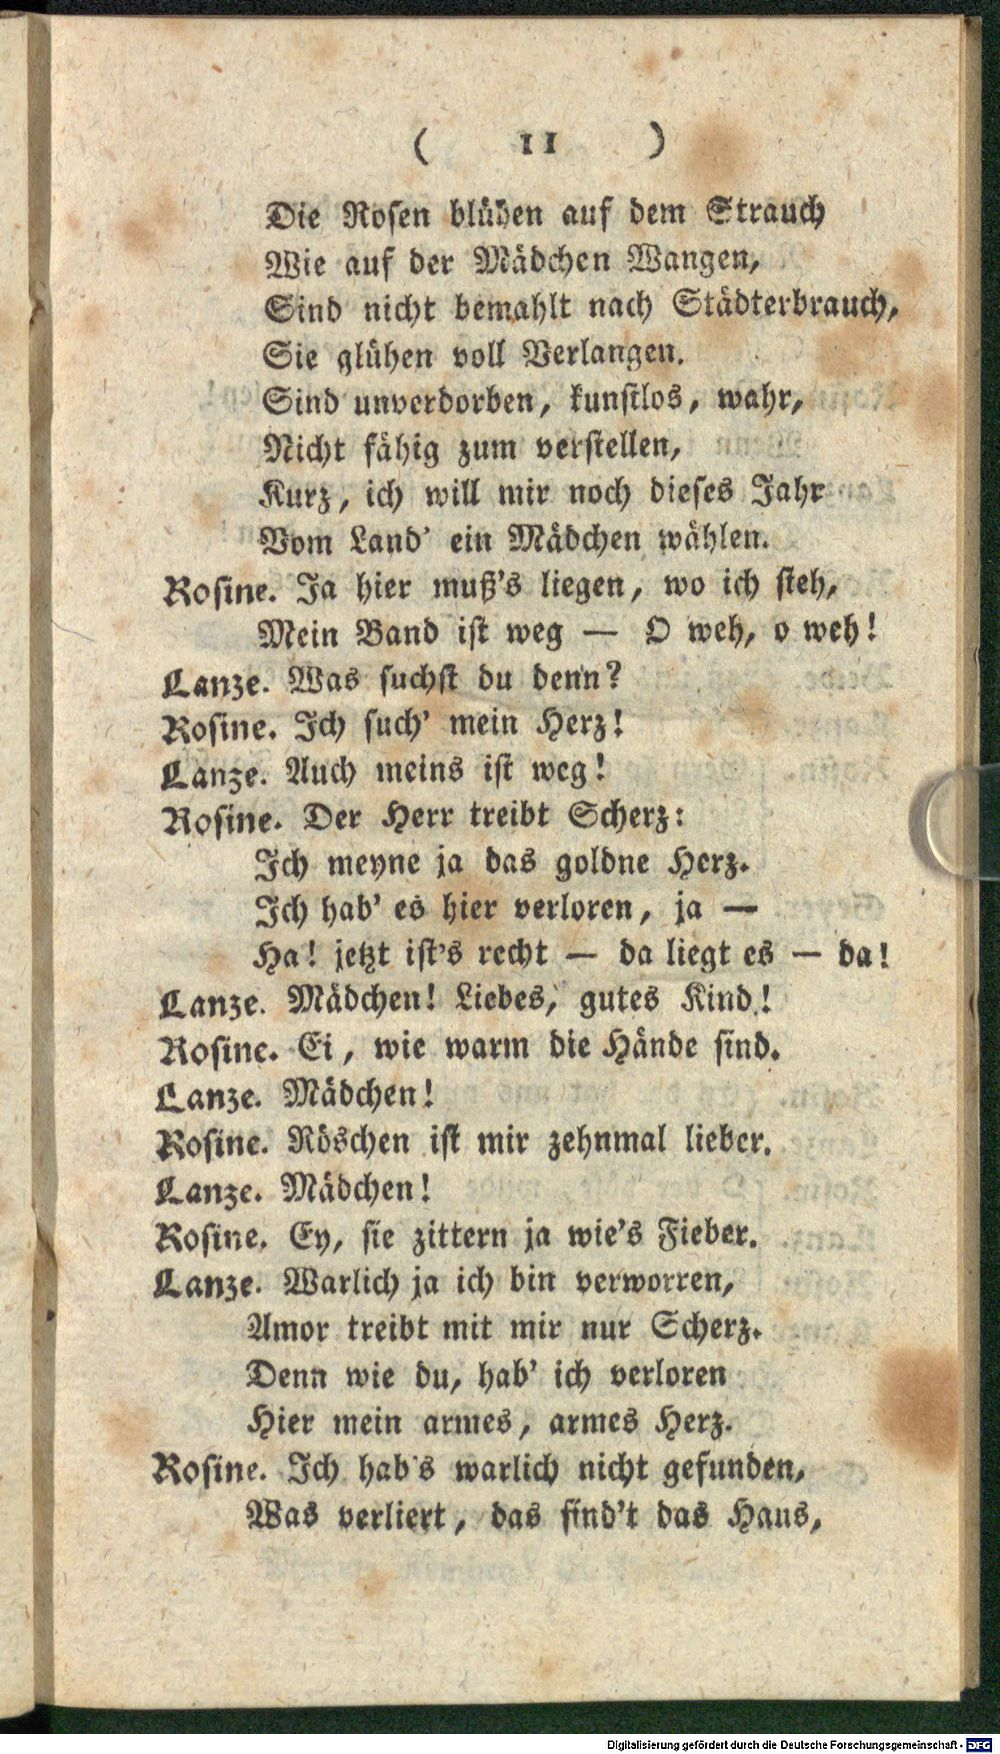 ( 11 )
Die Rosen blühen auf dem Strauch
Wie auf der Mädchen Wangen,
Sind nicht bemahlt nach Städterbrauch,
Sie glühen voll Verlangen.
Sind unverdorben, kunstlos, wahr,
Nicht fähig zum verstellen,
Kurz, ich will mir noch dieses Jahr
Vom Land' ein Mädchen wählen.
Rosine. Ja hier muß's liegen, wo ich steh,
Mein Band ist weg — O weh, o weh!
Lanze. Was suchst du denn?
Rosine. Ich such' mein Herz!
Lanze. Auch meins ist weg!
Rosine. Der Herr treibt Scherz:
Ich meyne ja das goldne Herz.
Ich hab' es hier verloren, ja —
Ha! jetzt ist's recht — da liegt es — da!
Lanze. Mädchen! Liebes, gutes Kind!
Rosine. Ei, wie warm die Hände sind.
Lanze. Mädchen!
Rosine. Röschen ist mir zehnmal lieber.
Lanze. Mädchen!
Rosine. Ey, sie zittern ja wie's Fieber.
Lanze. Warlich ja ich bin verworren,
Amor treibt mit mir nur Scherz.
Denn wie du, hab' ich verloren
Hier mein armes, armes Herz.
Rosine. Ich hab's warlich nicht gefunden,
Was verliert, das find't das Haus,
Digitalisierung gefördert durch die Deutsche Forschungsgemeinschaft - DFG